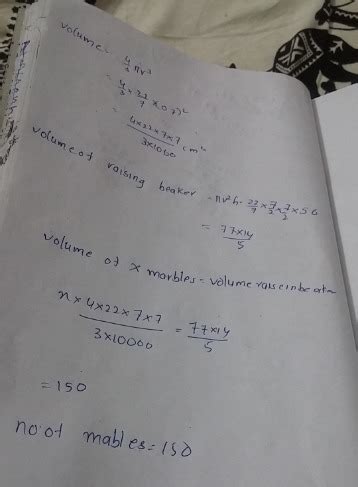 volume =
4/3 πr³
= 4/3 × 22/7 × (0.7)²
= 4×22×7×7 / 3×1000 cm²
volume of raising beaker = πr²h = 22/7 × 7/2 × 7/2 × 5.6
= 77×14 / 5
volume of x marbles = volume raise in beaker
n × 4×22×7×7 / 3×10000 = 77×14 / 5
= 150
no. of mables = 150